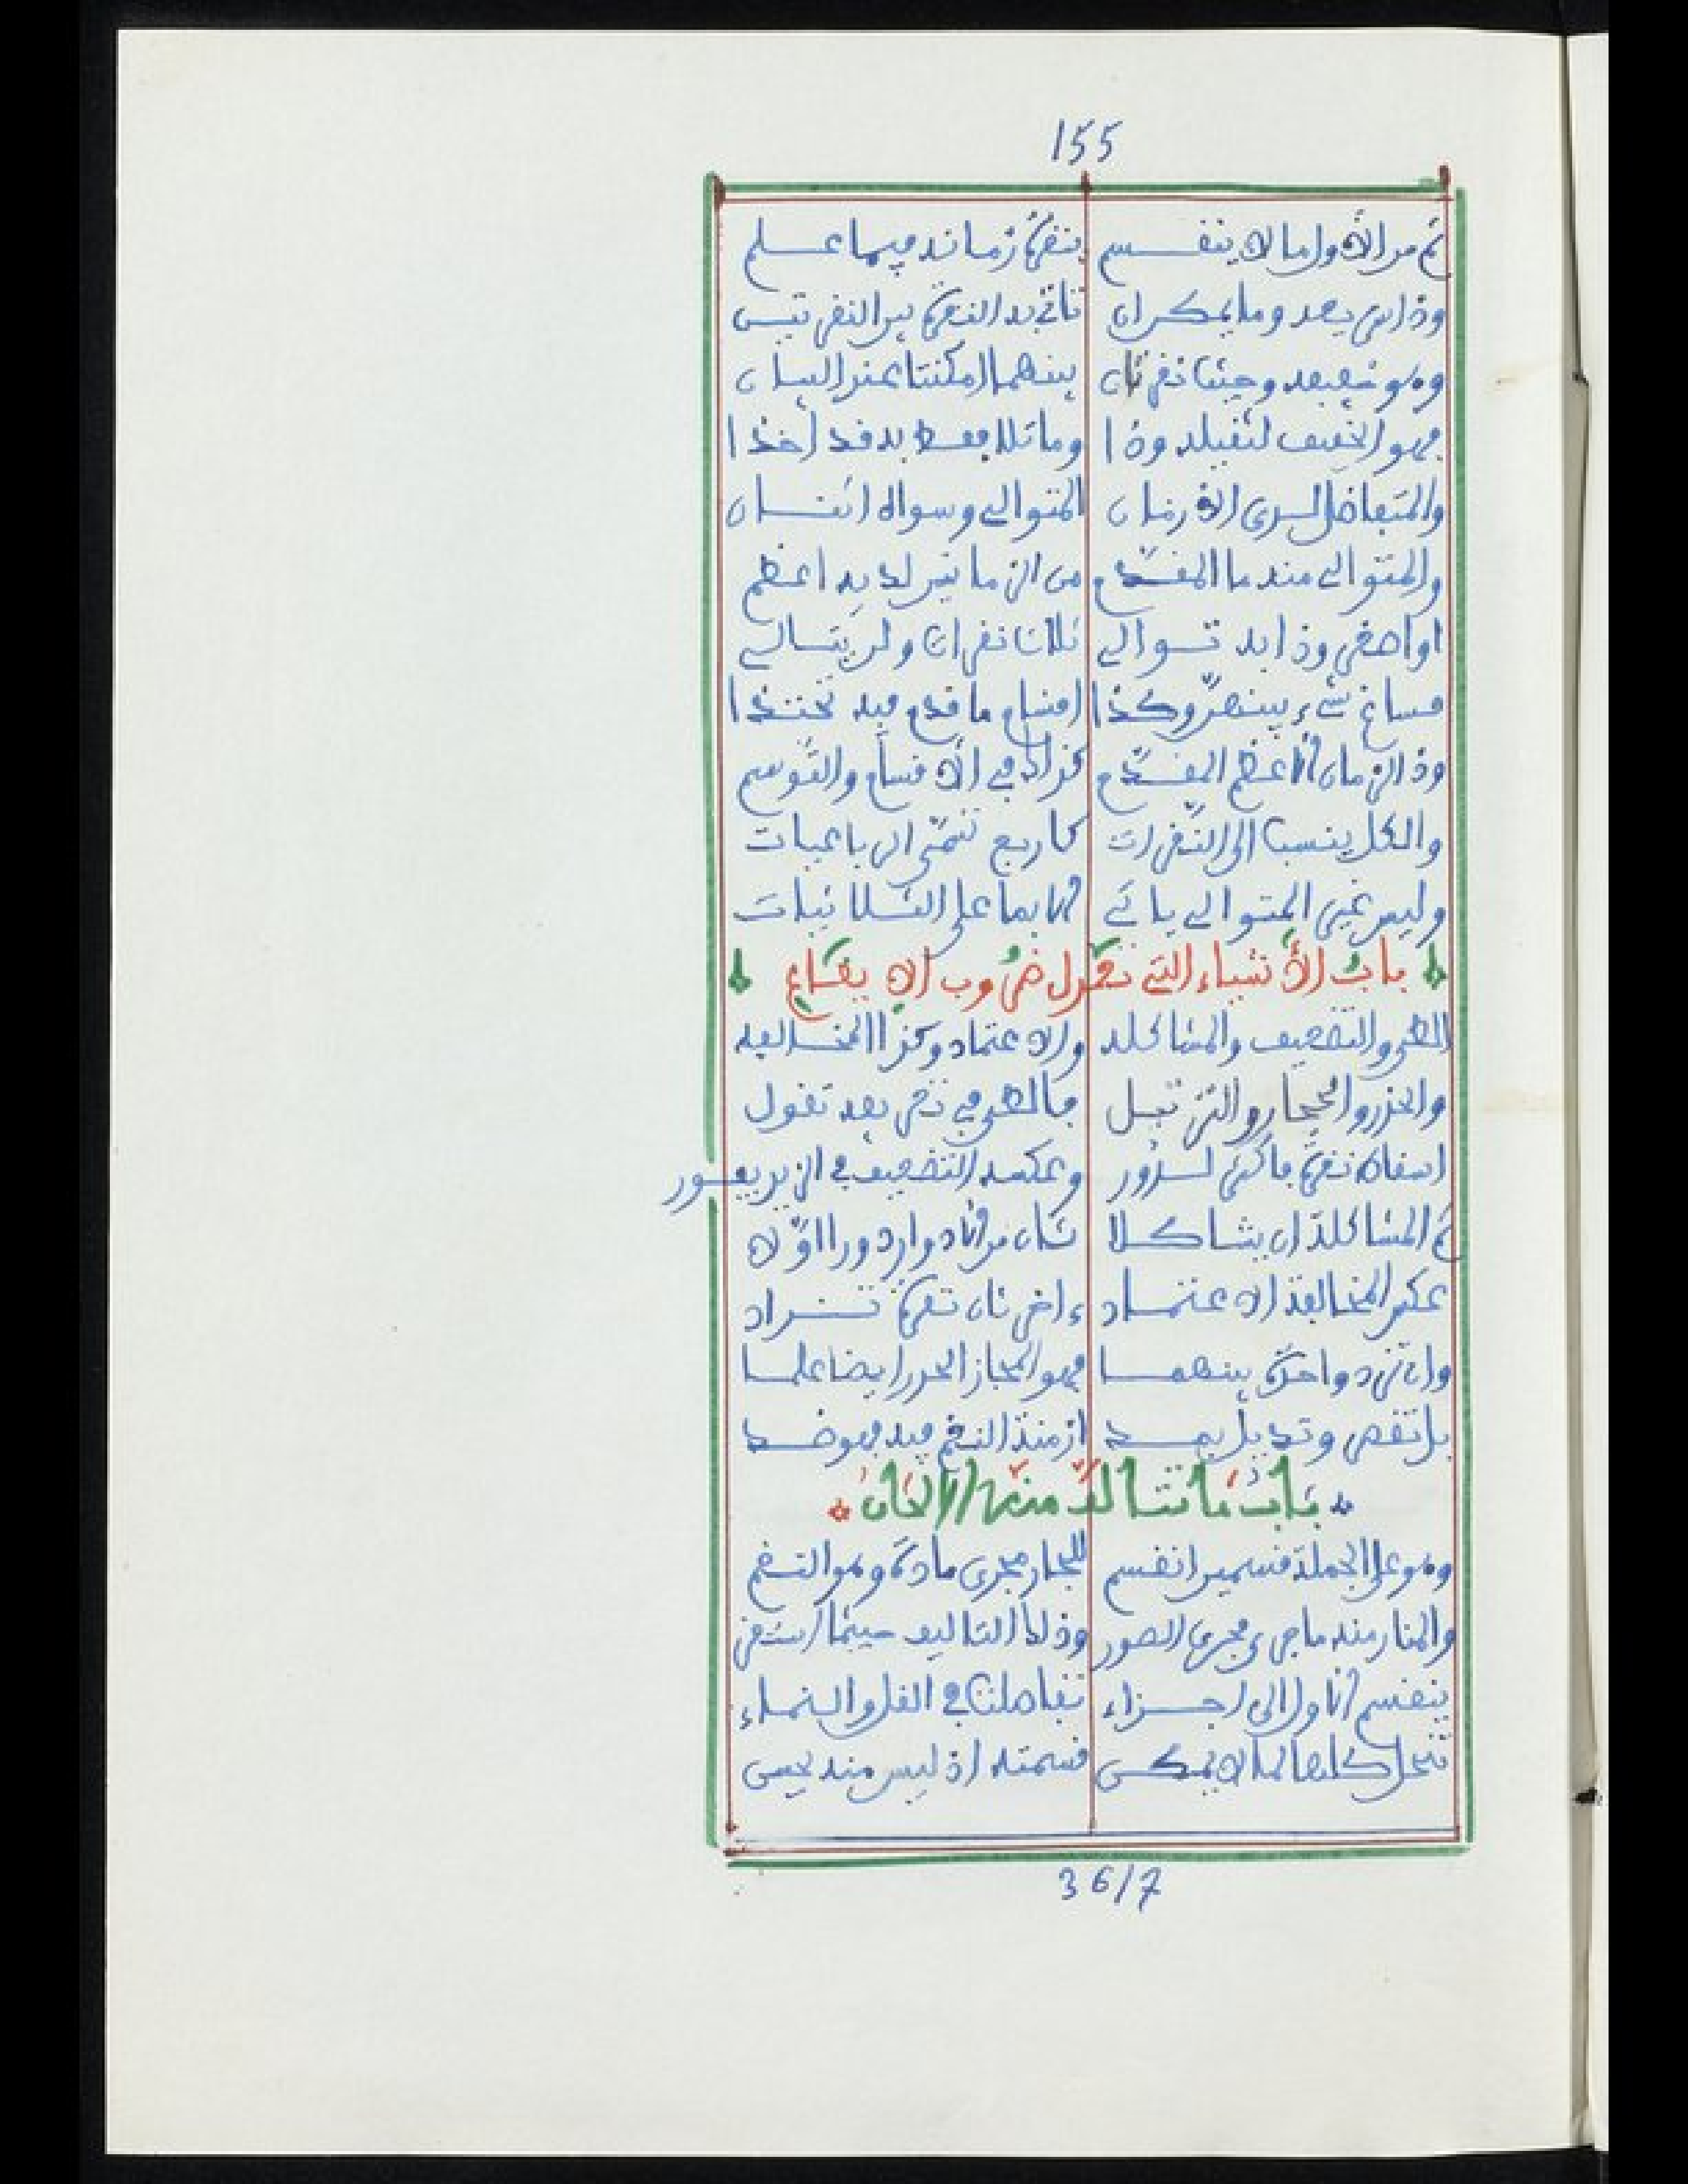 155
ثم من الأول ما لا ينقسم بنقرة زمانه فيما علم
وذا س بعد وما يمكن ان تأتي به النقرة بين النقرتين
وهو ضعيفه وحيثما نقرتان بينهما امكنتا عند البيان
فهو الخفيف لثقيله وذا وما تلا فقط به قد أخذا
والمتفاضل لدى الازمان المتوالي وسواه اثنان
والمتوالي منه ما المقدم من الزمانين لديه اعظم
او اصغر وذا به توالي ثلاث نقرات ولن يبالي
مساغ شيء بينهن وكذا اقسام ما قدم فيه تحتذا
وذا الزمان الأعظم المقدم كذاك في الأقسام والتوسم
والكل ينسب الى النقرات كاربع تنمى الرباعيات
وليس غير المتوالي ياتي الا بما على الثلاثيات
باب الأشياء التي تغير ضروب الايقاع
الطي والتضعيف والمشاكله والاعتماد وكذا المخالفه
والحزر والمجاز والترتيل فالطي في نقر بعد تقول
اسقاط نقرة فاكثر لدور وعكسه التضعيف في الزيد يغور
ثم المشاكلة ان يشاكلا ثان من الأدوار دورا اولا
عكس المخالفة الاعتماد ءاخر ثان نقرة تزاد
وان تزد واحدة بينهما فهو المجاز الحزر ايضا علما
بل نقص وتد بل بعد ازمنة النغم فيه
باب ما تتألف منه الالحان
وهو على الجملة قسمين انقسم للجار مجرى مادة وهو النغم
والثان منه ما جرى مجرى الصور وذلك التاليف حيثما استقر
ينقسم الأول الى اجزاء تفاصلت في القل والنماء
تنحل كلها لما لا يمكن قسمته اذ ليس منه يحسن
36/7